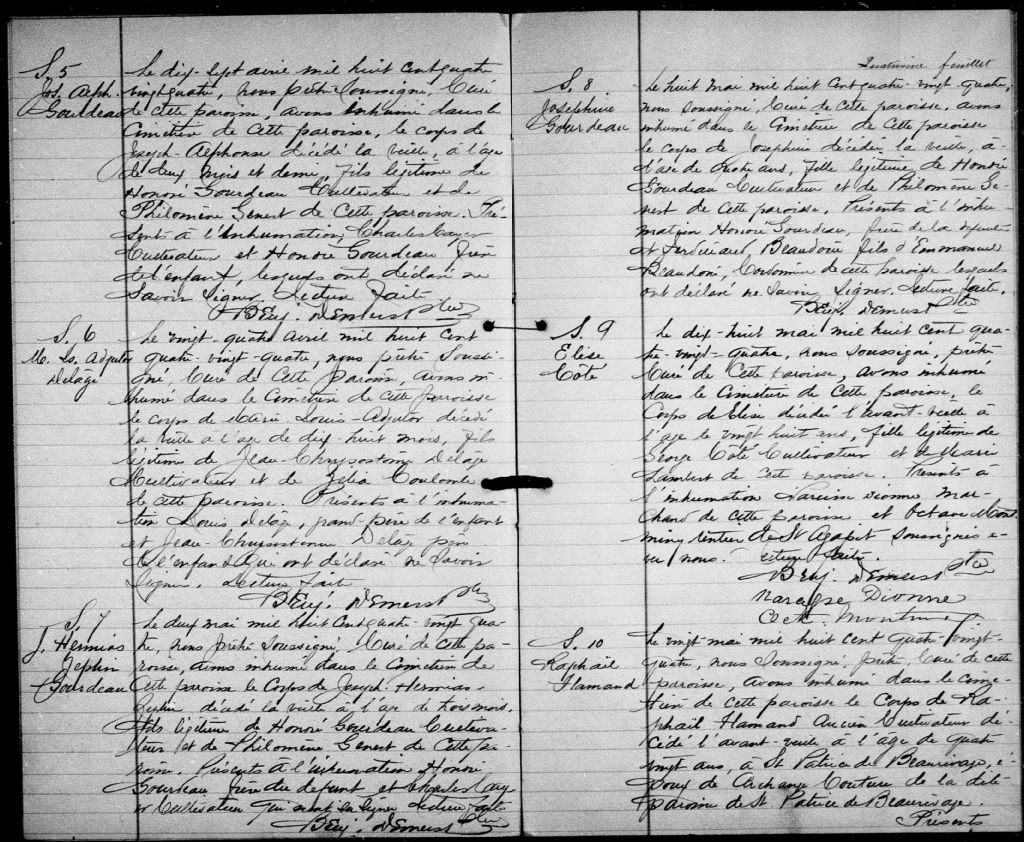 S. 5
Jos. Alph.
Gourdeau
Le dix-sept avril mil huit cent quatre
vingt quatre, nous prêtre soussigné, Curé
de cette paroisse, avons inhumé dans le
Cimetière de Cette paroisse, le corps de
Joseph-Alphonse décédé la veille, à l'âge
de deux mois et demi, fils légitime de
Honoré Gourdeau Cultivateur et de
Philomène Genest de Cette paroisse. Pré-
sents à l'inhumation, Charles
Cultivateur et Honoré Gourdeau frère
de l'enfant, lesquels ont déclaré ne
Savoir Signer. Lecture faite
Benj. Demers Ptre
S. 6
M. Ls. Adjutor
Delâge
Le vingt-quatre avril mil huit Cent
quatre-vingt-quatre, nous prêtre Soussi-
gné, Curé de Cette paroisse, avons in-
humé dans le Cimetière de Cette paroisse
le corps de Marie Louis-Adjutor décédé
la veille à l'age de dix-huit mois, fils
légitime de Jean-Chrysostôme Delâge
Cultivateur et de Zélia Coulombe
de cette paroisse. Présents à l'inhuma-
tion Louis Delâge, grand-père de l'enfant
et Jean-Chrysostôme Delage père
de l'enfant qui ont déclaré ne Savoir
Signer. Lecture fait
Benj. Demers Ptre
S. 7
J. Hermias
Zephir
Gourdeau
Le deux mai mil huit Cent quatre-vingt qua-
tre, nous prêtre Soussigné, Curé de Cette pa-
roisse, avons inhumé dans le Cimetière de
Cette paroisse le Corps de Joseph-Hermias-
Zephir décédé la veille à l'age de trois mois.
Fils légitime de Honoré Gourdeau Cultiva-
teur et de Philomène Genest de Cette pa-
roisse. Présents à l'inhumation Honoré
Gourdeau frère du défunt et Charles
Cultivateur qui n'ont su Signer Lecture faite
Benj. Demers Ptre
Quatrième feuillet
S. 8
Joséphine
Gourdeau
Le huit mai mil huit Cent quatre-vingt quatre,
nous soussigné, Curé de Cette paroisse, avons
inhumé dans le Cimetière de Cette paroisse
le corps de Joséphine décédée la veille, à
l'âge de quatre ans, fille légitime de Honoré
Gourdeau Cultivateur et de Philomène Ge-
nest de Cette paroisse. Présents à l'inhu-
mation Honoré Gourdeau, frère de la défunte
et Ferdinand Beaudoin fils d'Emmanuel
Beaudoin, Cordonnier de cette paroisse lesquels
ont déclaré ne Savoir Signer. Lecture faite.
Benj. Demers Ptre
S. 9
Elise
Côté
Le dix-huit mai mil huit cent qua-
tre-vingt-quatre, nous soussigné, prêtre
Curé de Cette paroisse, avons inhumé
dans le Cimetière de Cette paroisse, le
Corps de Elise décédé l'avant-veille à
l'age de vingt huit ans, fille légitime de
George Côté Cultivateur et de Marie
Lambert de Cette paroisse. Présents à
l'inhumation Narcisse Dionne Mar-
chand de Cette paroisse et Octave Mont-
miny de St Agapit Soussignés a-
vec nous. Lecture faite.
Benj. Demers Ptre
Narcisse Dionne
Oct. Montminy
S. 10
Raphaël
Hamand
Le vingt-mai mil huit Cent quatre-vingt-
quatre, nous Soussigné, prêtre, Curé de cette
paroisse, avons inhumé dans le cime-
tière de cette paroisse le Corps de Ra-
phaël Hamand Ancien Cultivateur dé-
cédé l'avant-veille à l'âge de quatre
vingt ans, à St Patrice de Beaurivage, é-
poux de Archange Couture de la dite
paroisse de St Patrice de Beaurivage.
Présents